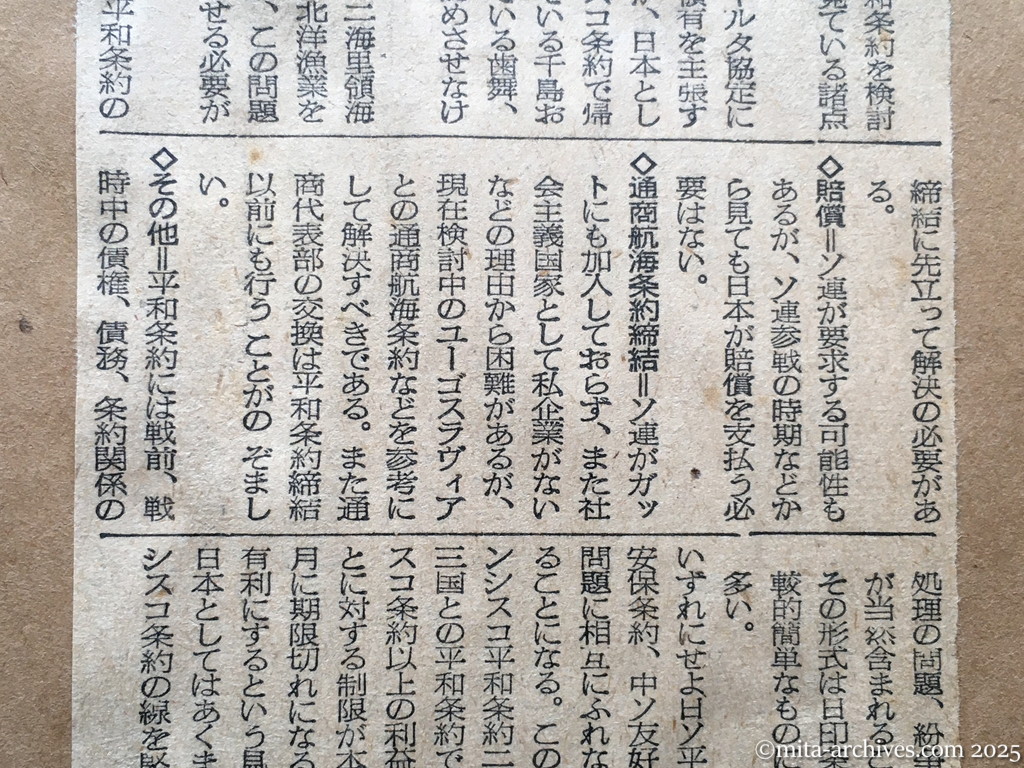 和条約を検討
見ている諸点
ルタ協定に
領有を主張す
が、日本とし
スコ条約で帰
ている千島お
いる歯舞、
めさせなけ
二海里領海
北洋漁業を
、この問題
せる必要が
平和条約の
締結に先立って解決の必要があ
る。
◇賠償＝ソ連が要求する可能性も
あるが、ソ連参戦の時期などか
ら見ても日本が賠償を支払う必
要はない。
◇通商航海条約締結＝ソ連がガッ
トにも加入しておらず、また社
会主義国家として私企業がない
などの理由から困難があるが、
現在検討中のユーゴスラヴィア
との通商航海条約などを参考に
して解決すべきである。また通
商代表部の交換は平和条約締結
以前にも行うことがのぞまし
い。
◇その他＝平和条約には戦前、戦
時中の債権、債務、条約関係の
処理の問題、紛争
が当然含まれると
その形式は日印条
較的簡単なものに
多い。
いずれにせよ日ソ平
安保条約、中ソ友好
問題に相互にふれな
ることになる。この
ンシスコ平和条約二
三国との平和条約で
スコ条約以上の利益
とに対する制限が本
月に期限切れになる
有利にするという見
日本としてはあくま
シスコ条約の線を堅
©mita-archives.com 2025